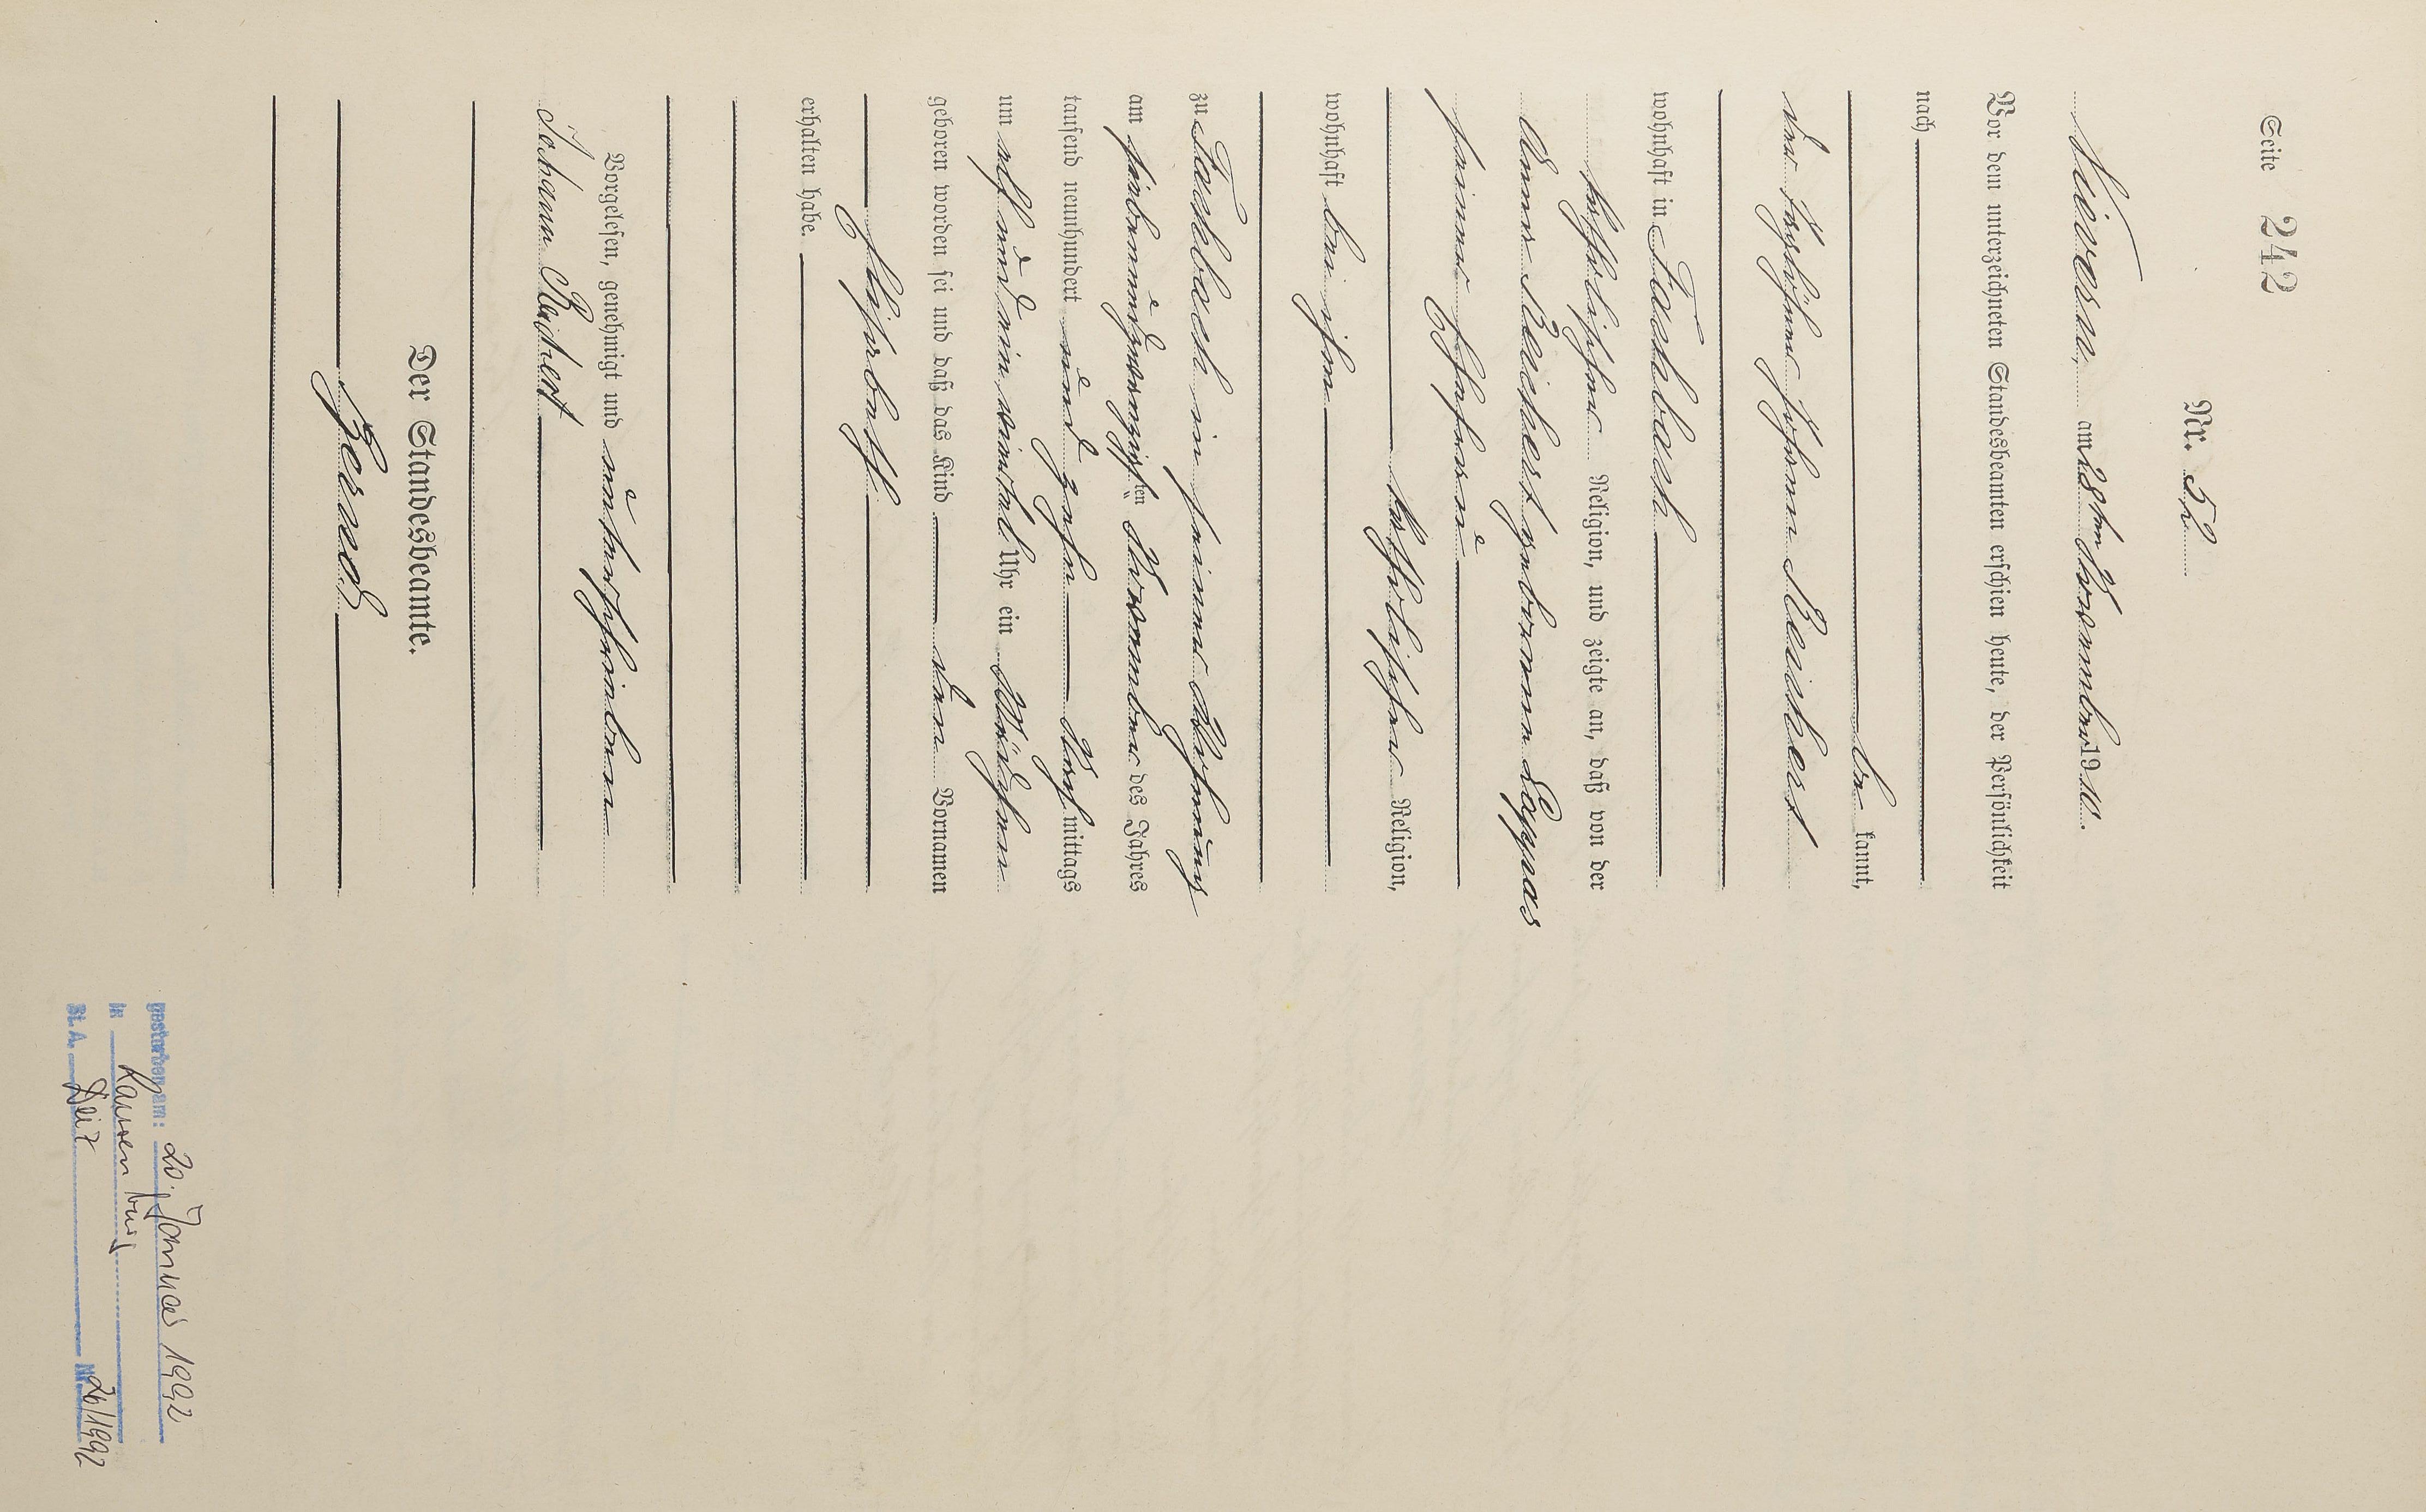 Seite 242
Nr. 52
Nievern, am 28ten November 1910.
Vor dem unterzeichneten Standesbeamten erschien heute, der Persönlichkeit
nach
be kannt,
der Johann Reichert
wohnhaft in Fachbach
katholischer Religion, und zeigte an, daß von der
Anna Reichert geborenen Lappas
seiner Ehefrau
katholischer Religion,
wohnhaft bei ihm
zu Fachbach in seiner Wohnung
am siebenundzwanzigsten November des Jahres
tausend neunhundert und zehn Nachmittags
um elf und ein viertel Uhr ein Mädchen
geboren worden sei und daß das Kind den Vornamen
Elisabeth
erhalten habe.
Vorgelesen, genehmigt und unterschrieben
Johann Reichert
Der Standesbeamte.
gestorben am: 20. Januar 1992
in Lauren burg
St. A. Diez Nr. 26/1992